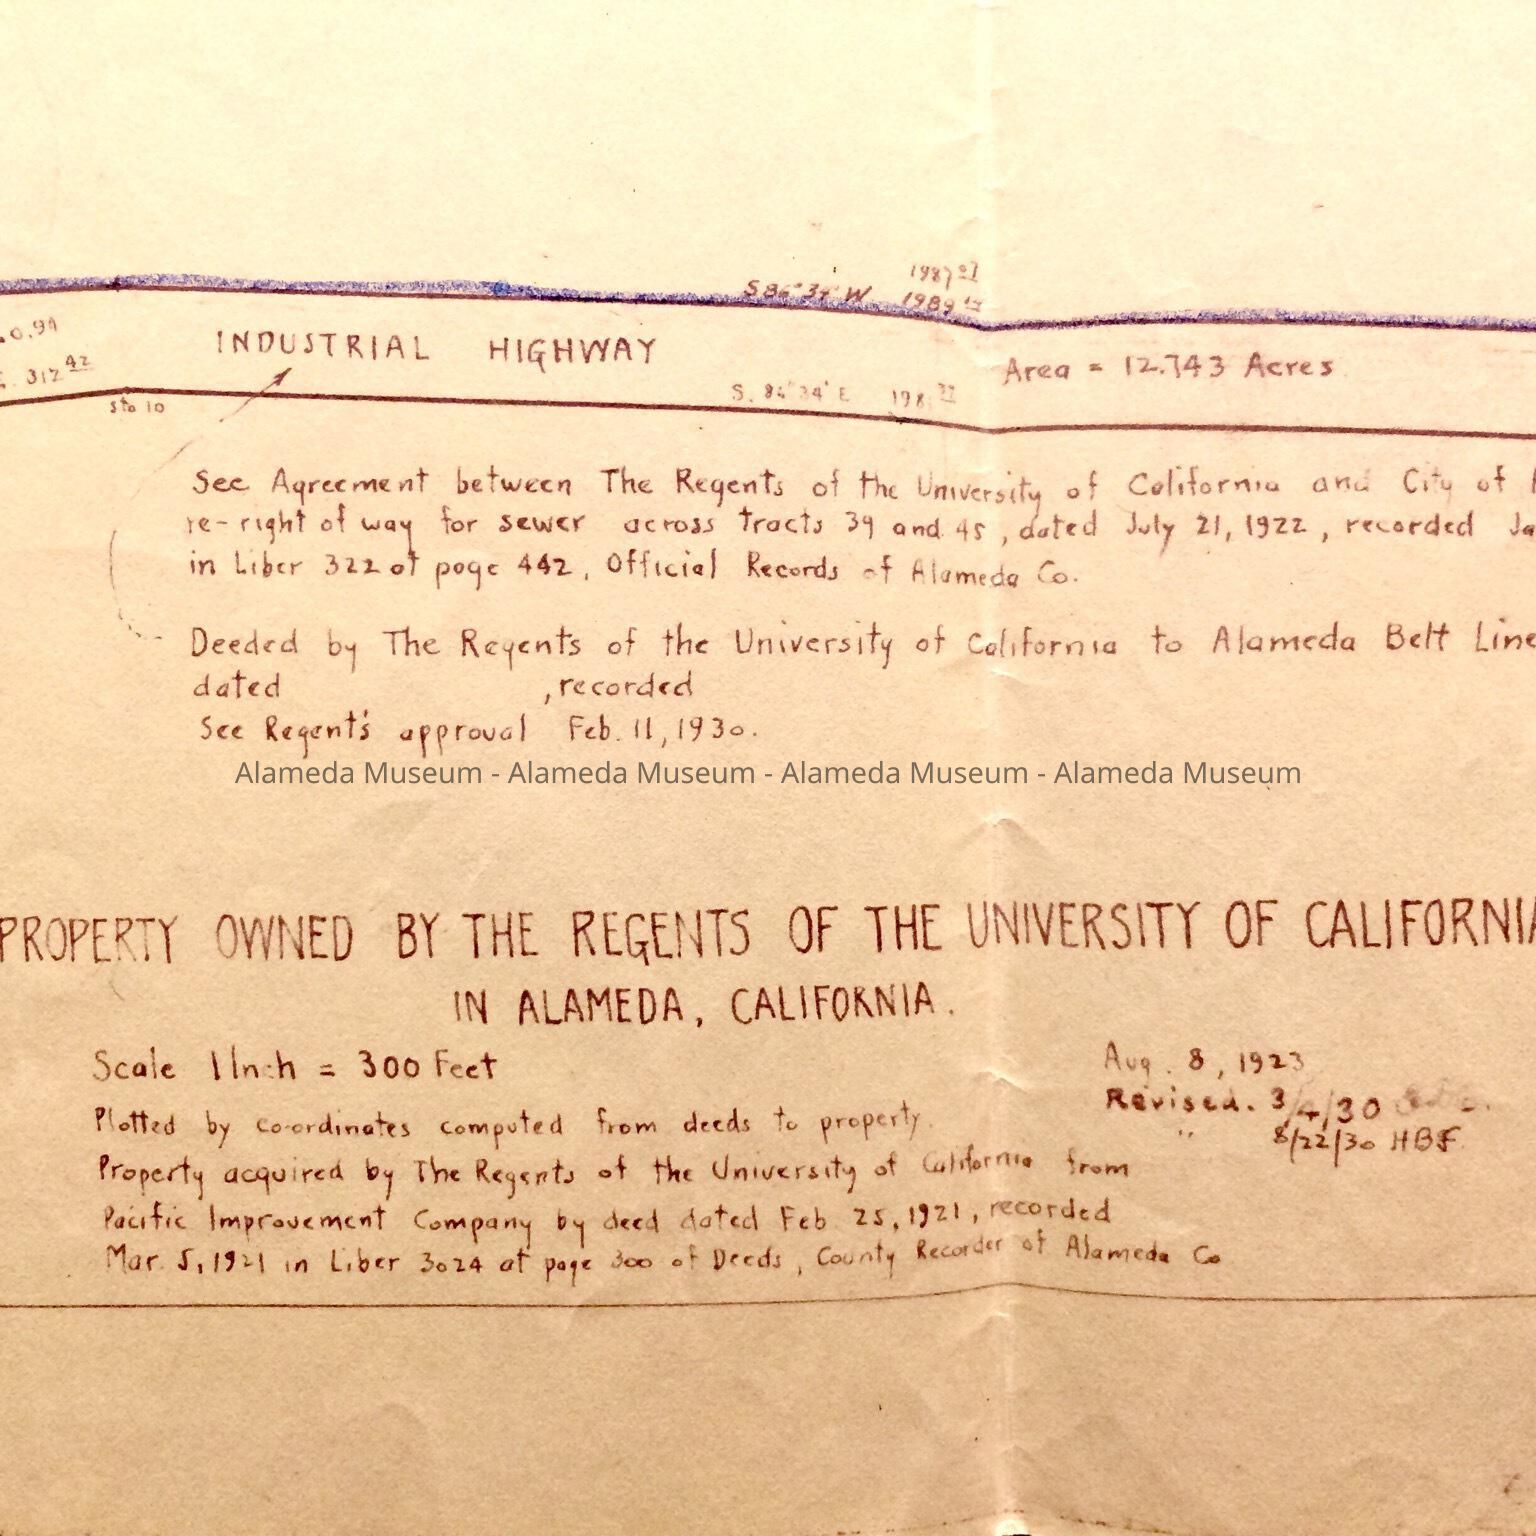 S 86° 34' W
0.94
INDUSTRIAL HIGHWAY
Area = 12.743 Acres
312 42
Sta 10
See Agreement between The Regents of the University of California and City of
re-right of way for sewer across tracts 39 and 45, dated July 21, 1922, recorded Ja
in Liber 322 at page 442, Official Records of Alameda Co.
Deeded by The Regents of the University of California to Alameda Belt Line
dated , recorded
See Regent's approval Feb. 11, 1930.
Alameda Museum - Alameda Museum - Alameda Museum - Alameda Museum
PROPERTY OWNED BY THE REGENTS OF THE UNIVERSITY OF CALIFORNIA
IN ALAMEDA, CALIFORNIA.
Scale 1 Inch = 300 Feet
Aug. 8, 1923
Revised. 3/4/30
" 8/22/30 HBF
Plotted by co-ordinates computed from deeds to property.
Property acquired by The Regents of the University of California from
Pacific Improvement Company by deed dated Feb. 25, 1921, recorded
Mar. 5, 1921 in Liber 3024 at page 300 of Deeds, County Recorder of Alameda Co